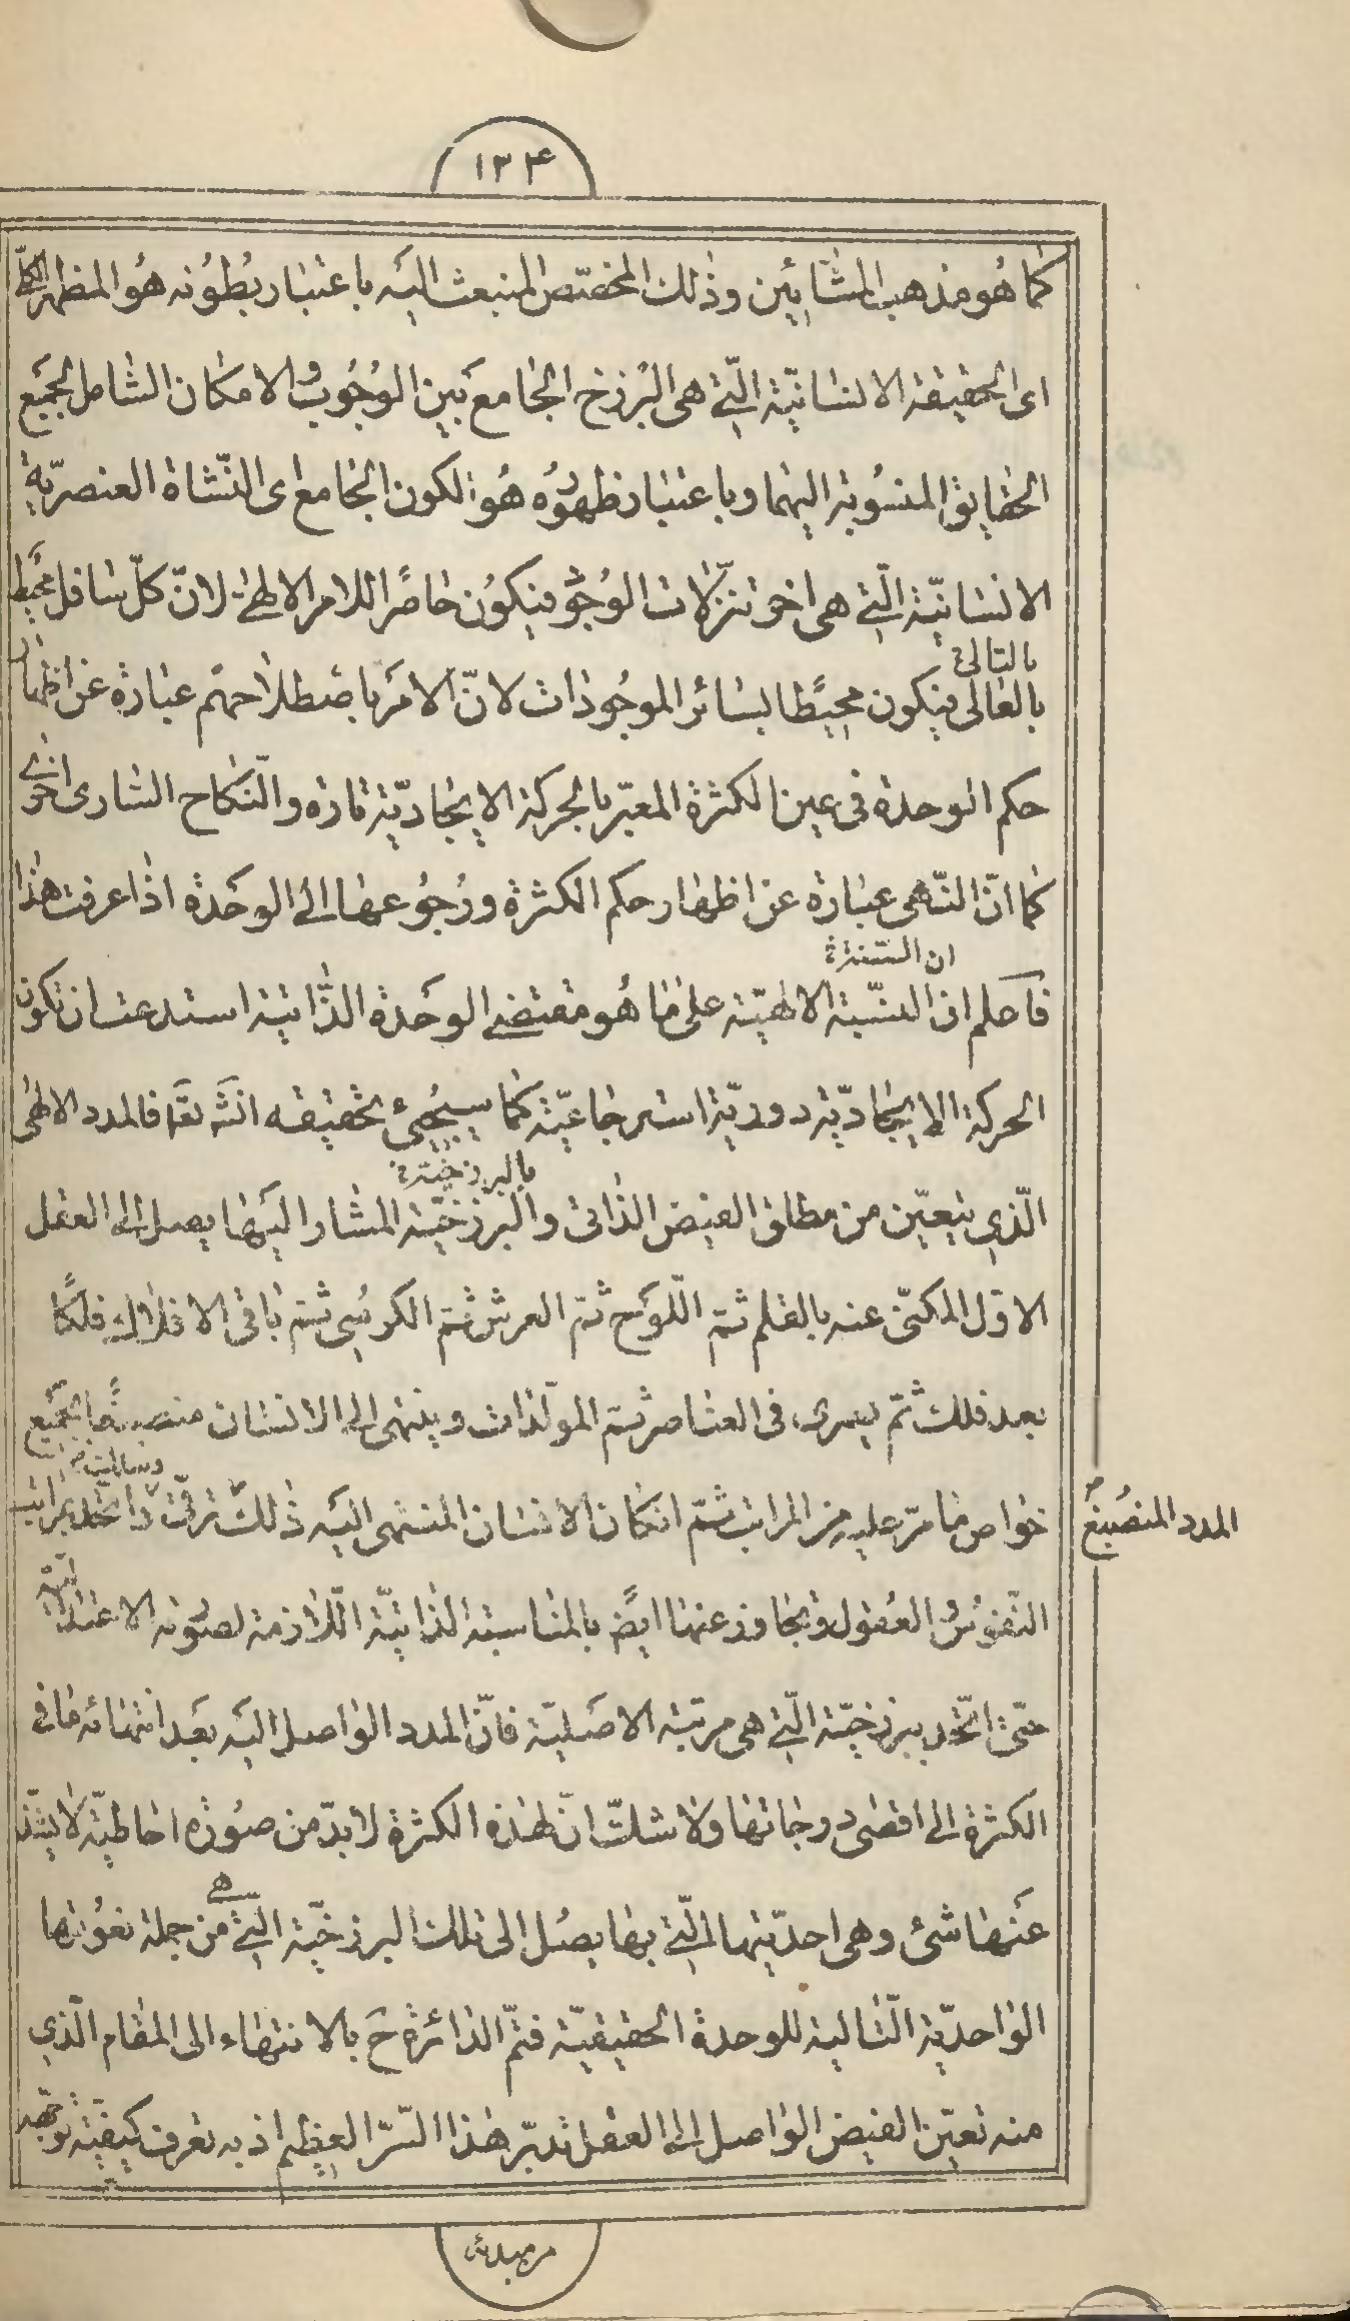 ۱۳۴
كما هو مذهب المشائين وذلك المختص المنبعث اليه باعتبار بطونه هو المظهر الكلي
اى الحقيقة الانسانية التي هى البرزخ الجامع بين الوجوب والامكان الشامل لجميع
الحقايق المنسوبة اليهما وباعتبار ظهوره هو الكون الجامع اى النشاة العنصرية
الانسانية التي هى اخر تنزلات الوجود فيكون حاصرا للامر الالهي لان كل سافل محيط
بالتالى
بالعالى فيكون محيطا بسائر الموجودات لان الامر باصطلاحهم عبارة عن اظهار
حكم الوحدة فى عين الكثرة المعبر بالحركة الايجادية تارة والنكاح السارى اخرى
كما ان النهى عبارة عن اظهار حكم الكثرة ورجوعها الى الوحدة اذا عرفت هذا
ان السنة
فاعلم ان النسبة الالهية على ما هو مقتضى الوحدة الذاتية استدعت ان تكون
الحركة الايجادية دورية استرجاعية كما سيجيئ تحقيقه انش تع فالمدد الالهى
بالبرزخية
الذي يتعين من مطلق الفيض الذاتى والبرزخية المشار اليها يصل الى العقل
الاول المكنى عنه بالقلم ثم اللوح ثم العرش ثم الكرسي ثم باقى الافلاك فلكا
بعد فلك ثم يسرى فى العناصر ثم المولدات وينتهى الى الانسان منصبغا بجميع
خواص ما مر عليه من المراتب ثم ان كان الانسان المنتهى اليه ذلك ترقى واتحد بمراتب
المدد المنصبغ
النفوس العقول وتجاوز عنها ايض بالمناسبة الذاتية اللازمة لصورته الاعتدالية
حتى اتحد ببرزخية التي هى مرتبة الاصلية فان المدد الواصل اليه بعد انتهائه فى
الكثرة الى اقصى درجاتها ولا شك ان لهذه الكثرة لابد من صورة احاطية لا يشذ
عنها شئ وهى احديتها التي بها يصل الى تلك البرزخية التي هى من جملة نعوتها
الواحدية التالية للوحدة الحقيقية فتم الدائرة ح بالانتهاء الى المقام الذي
منه تعين الفيض الواصل الى العقل تدبر هذا السر العظيم اذ به تعرف كيفية توجه